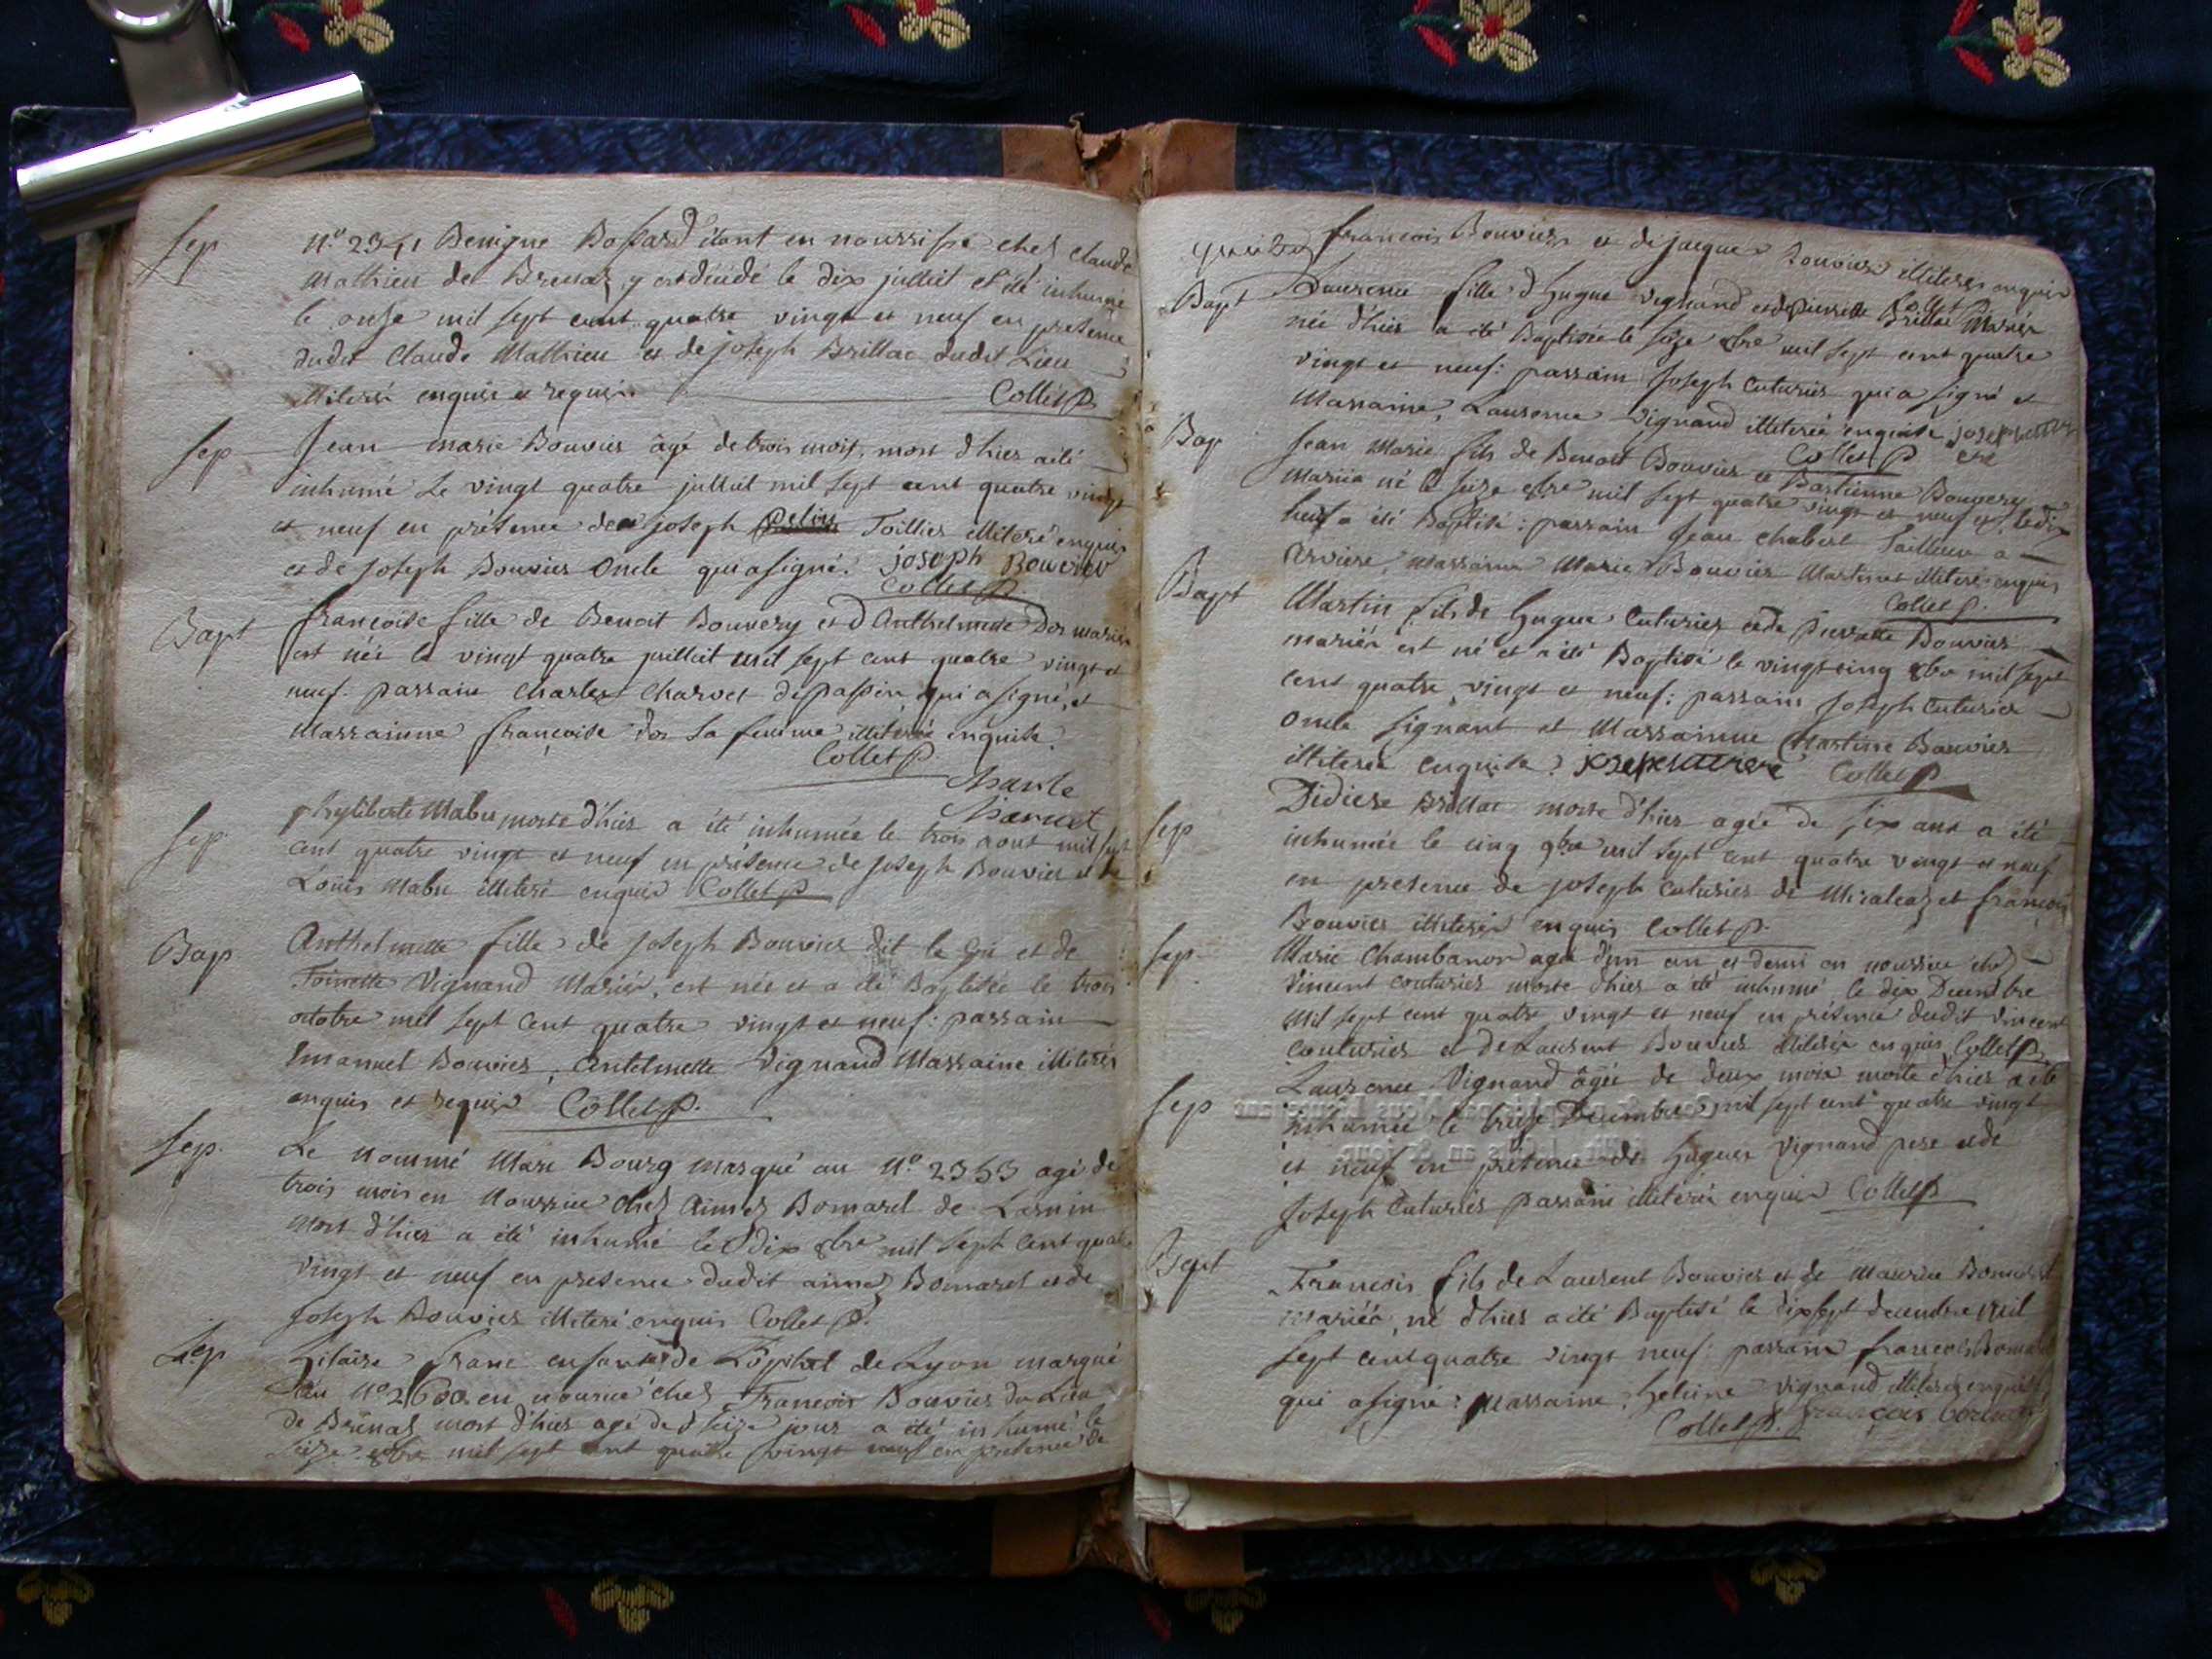 Sep N° 2341 Benigne Bossard étant en nourrisse chez Claude
Mathieu de Brenaz y est décédé le dix juillit et été inhumé
le onze mil sept cent quatre vingt et neuf en presence
dudit Claude Mathieu et de joseph Brillac dudit Lieu
illiteré enquis et requis Collet p.
Sep Jean marie Bouvier âgé de trois mois, mort d'hier a été
inhumé Le vingt quatre julliit mil sept cent quatre vingt
et neuf en présence de joseph Toillier illiteré enquis
et de Joseph Bouvier Oncle qui a signé. joseph Bouvier
Collet p.
Bapt françoise fille de Benoit Bouvery et d'Anthelmette Dor mariés
est née le vingt quatre juillit mil sept cent quatre vingt et
neuf. parrain Charles Charvet de passin qui a signé, et
Marrainne françoise dor sa femme illiterée enquise.
Collet p.
Charle
Charvet
Sep phyliberte Mabu morte d'hier a été inhumée le trois aout mil sept
cent quatre vingt et neuf en présence de joseph Bouvier et de
Loüis Mabu illiteré enquis Collet p
Bap Anthelmette fille de Joseph Bouvier dit le et de
Toinette Vignand Mariés, est née et a été Baptisée le trois
octobre mil sept cent quatre vingt et neuf: parrain
Emanuel Bouvier, Antelmette Vignand Marraine illiterés
enquis et requis Collet p.
Sep. Le nommé Marc Bourg marqué au N° 2353 agé de
trois mois en Nourrice chez Aimez Bomarel de
mort d'hier a été inhumé le dix 8bre mil sept cent quatre
vingt et neuf en presence dudit aimez Bomarel et de
Joseph Bouvier illiteré enquis Collet p.
Sep Hilaire franc enfant de L'opital de Lyon marqué
au N° 2600 en nourrice chez François Bouvier du Lieu
de Brénaz mort d'hier agé de seize jour a été inhumé le
seize 8bre mil sept cent quatre vingt neuf en presence de
françois Bouvier et de jacque Bouvier illiterés enquis
Collet p
Bapt Laurence fille d'hugue Vignand et de pierrette Brillac Mariés
née d'hier a été Baptisée le seize 8bre mil sept cent quatre
vingt et neuf: parrain Joseph Cuturier qui a signé et
Marraine, Laurence Vignand illiterée enquise
Collet p
Bap Jean Marie fils de Benoit Bouvier et Bastienne Bouvery
Mariés né le seize 8bre mil sept quatre vingt et neuf et le dix
huit a été Baptisé: parrain Jean Chabert Tailleur a
Arviere, marraine Marie Bouvier Martinet illiterés enquis
Collet p.
Bapt Martin fils de hugue Cuturier et de pierrette Bouvier
mariés est né et a été Baptisé le vingt cinq 8bre mil sept
cent quatre vingt et neuf: parrain Joseph Cuturier
Oncle signant et Marrainne Martine Bouvier
illiterée enquise. Collet p
Sep Didiere Brillac morte d'hier agée de six ans a été
inhumée le cinq 9bre mil sept cent quatre vingt et neuf
en presence de joseph Cuturier de et françois
Bouvier illiterés enquis Collet p.
Sep Marie Chambanon agé d'un an et demi en nourrice chez
Vincent couturier morte d'hier a été inhumé le dix Decembre
mil sept cent quatre vingt et neuf en présence dudit Vincent
Couturier et de Laurent Bouvier illiterés enquis Collet p
Sep Laurence Vignand âgée de deux mois morte d'hier a été
inhumée le treize Decembre mil sept cent quatre vingt
et neuf en presence de hugues Vignand pere et de
Joseph Cuturier parrain illiterés enquis Collet p
Bapt François fils de Laurent Bouvier et de Maurise
mariés, né d'hier a été Baptisé le dix sept decembre mil
sept cent quatre vingt neuf: parrain françois
qui a signé: Marraine, helene Vignand illiterée enquise
Collet p. françois